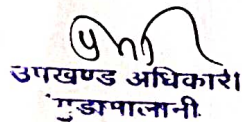 उपखण्ड अधिकारी
गुडामालानी